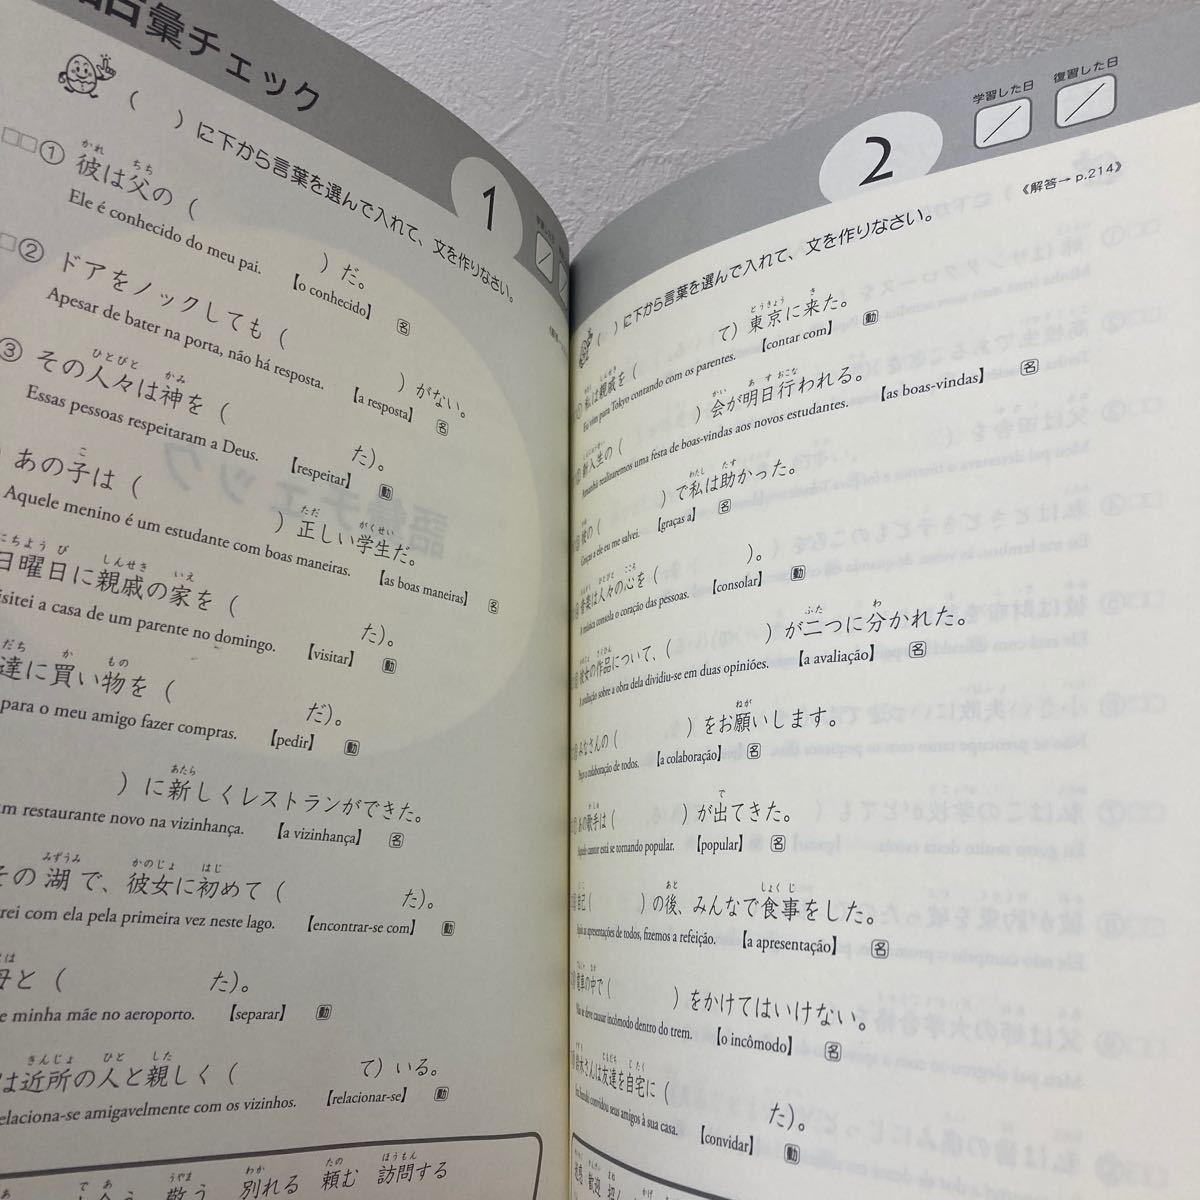 語彙チェック
1
（　）に下から言葉を選んで入れて、文を作りなさい。
① 彼は父の（　　）だ。
Ele é conhecido do meu pai. 【o conhecido】 名
② ドアをノックしても（　　）がない。
Apesar de bater na porta, não há resposta. 【a resposta】 名
③ その人々は神を（　　た）。
Essas pessoas respeitaram a Deus. 【respeitar】 動
あの子は（　　）正しい学生だ。
Aquele menino é um estudante com boas maneiras. 【as boas maneiras】 名
日曜日に親戚の家を（　　た）。
isitei a casa de um parente no domingo. 【visitar】 動
達に買い物を（　　だ）。
para o meu amigo fazer compras. 【pedir】 動
（　　）に新しくレストランができた。
m restaurante novo na vizinhança. 【a vizinhança】 名
その湖で、彼女に初めて（　　た）。
rei com ela pela primeira vez neste lago. 【encontrar-se com】 動
母と（　　た）。
e minha mãe no aeroporto. 【separar】 動
は近所の人と親しく（　　て）いる。
elaciona-se amigavelmente com os vizinhos. 【relacionar-se】 動
敬う 別れる 頼む 訪問する
2
学習した日 復習した日
《解答→ p.214》
（　）に下から言葉を選んで入れて、文を作りなさい。
私は親戚を（　　て）東京に来た。
Eu vim para Tokyo contando com os parentes. 【contar com】 動
新入生の（　　）会が明日行われる。
Amanhã realizaremos uma festa de boas-vindas aos novos estudantes. 【as boas-vindas】 名
彼の（　　）で私は助かった。
Graças a ele eu me salvei. 【graças a】 名
音楽は人々の心を（　　）。
A música consola o coração das pessoas. 【consolar】 動
彼女の作品について、（　　）が二つに分かれた。
A avaliação sobre a obra dela dividiu-se em duas opiniões. 【a avaliação】 名
みなさんの（　　）をお願いします。
Peço a colaboração de todos. 【a colaboração】 名
あの歌手は（　　）が出てきた。
Aquele cantor está se tornando popular. 【popular】 名
自己（　　）の後、みんなで食事をした。
Após as apresentações de todos, fizemos a refeição. 【a apresentação】 名
電車の中で（　　）をかけてはいけない。
Não se deve causar incômodo dentro do trem. 【o incômodo】 名
鈴木さんは友達を自宅に（　　た）。
convidou seus amigos à sua casa. 【convidar】 動
迷惑 歓迎